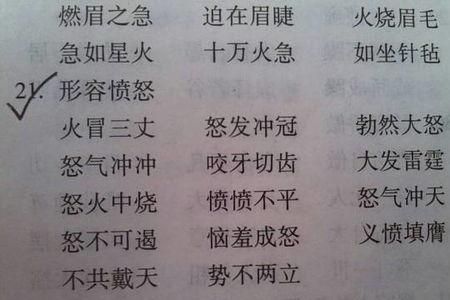 燃眉之急 迫在眉睫 火烧眉毛
急如星火 十万火急 如坐针毡
21. 形容愤怒
火冒三丈 怒发冲冠 勃然大怒
怒气冲冲 咬牙切齿 大发雷霆
怒火中烧 愤愤不平 怒气冲天
怒不可遏 恼羞成怒 义愤填膺
不共戴天 势不两立